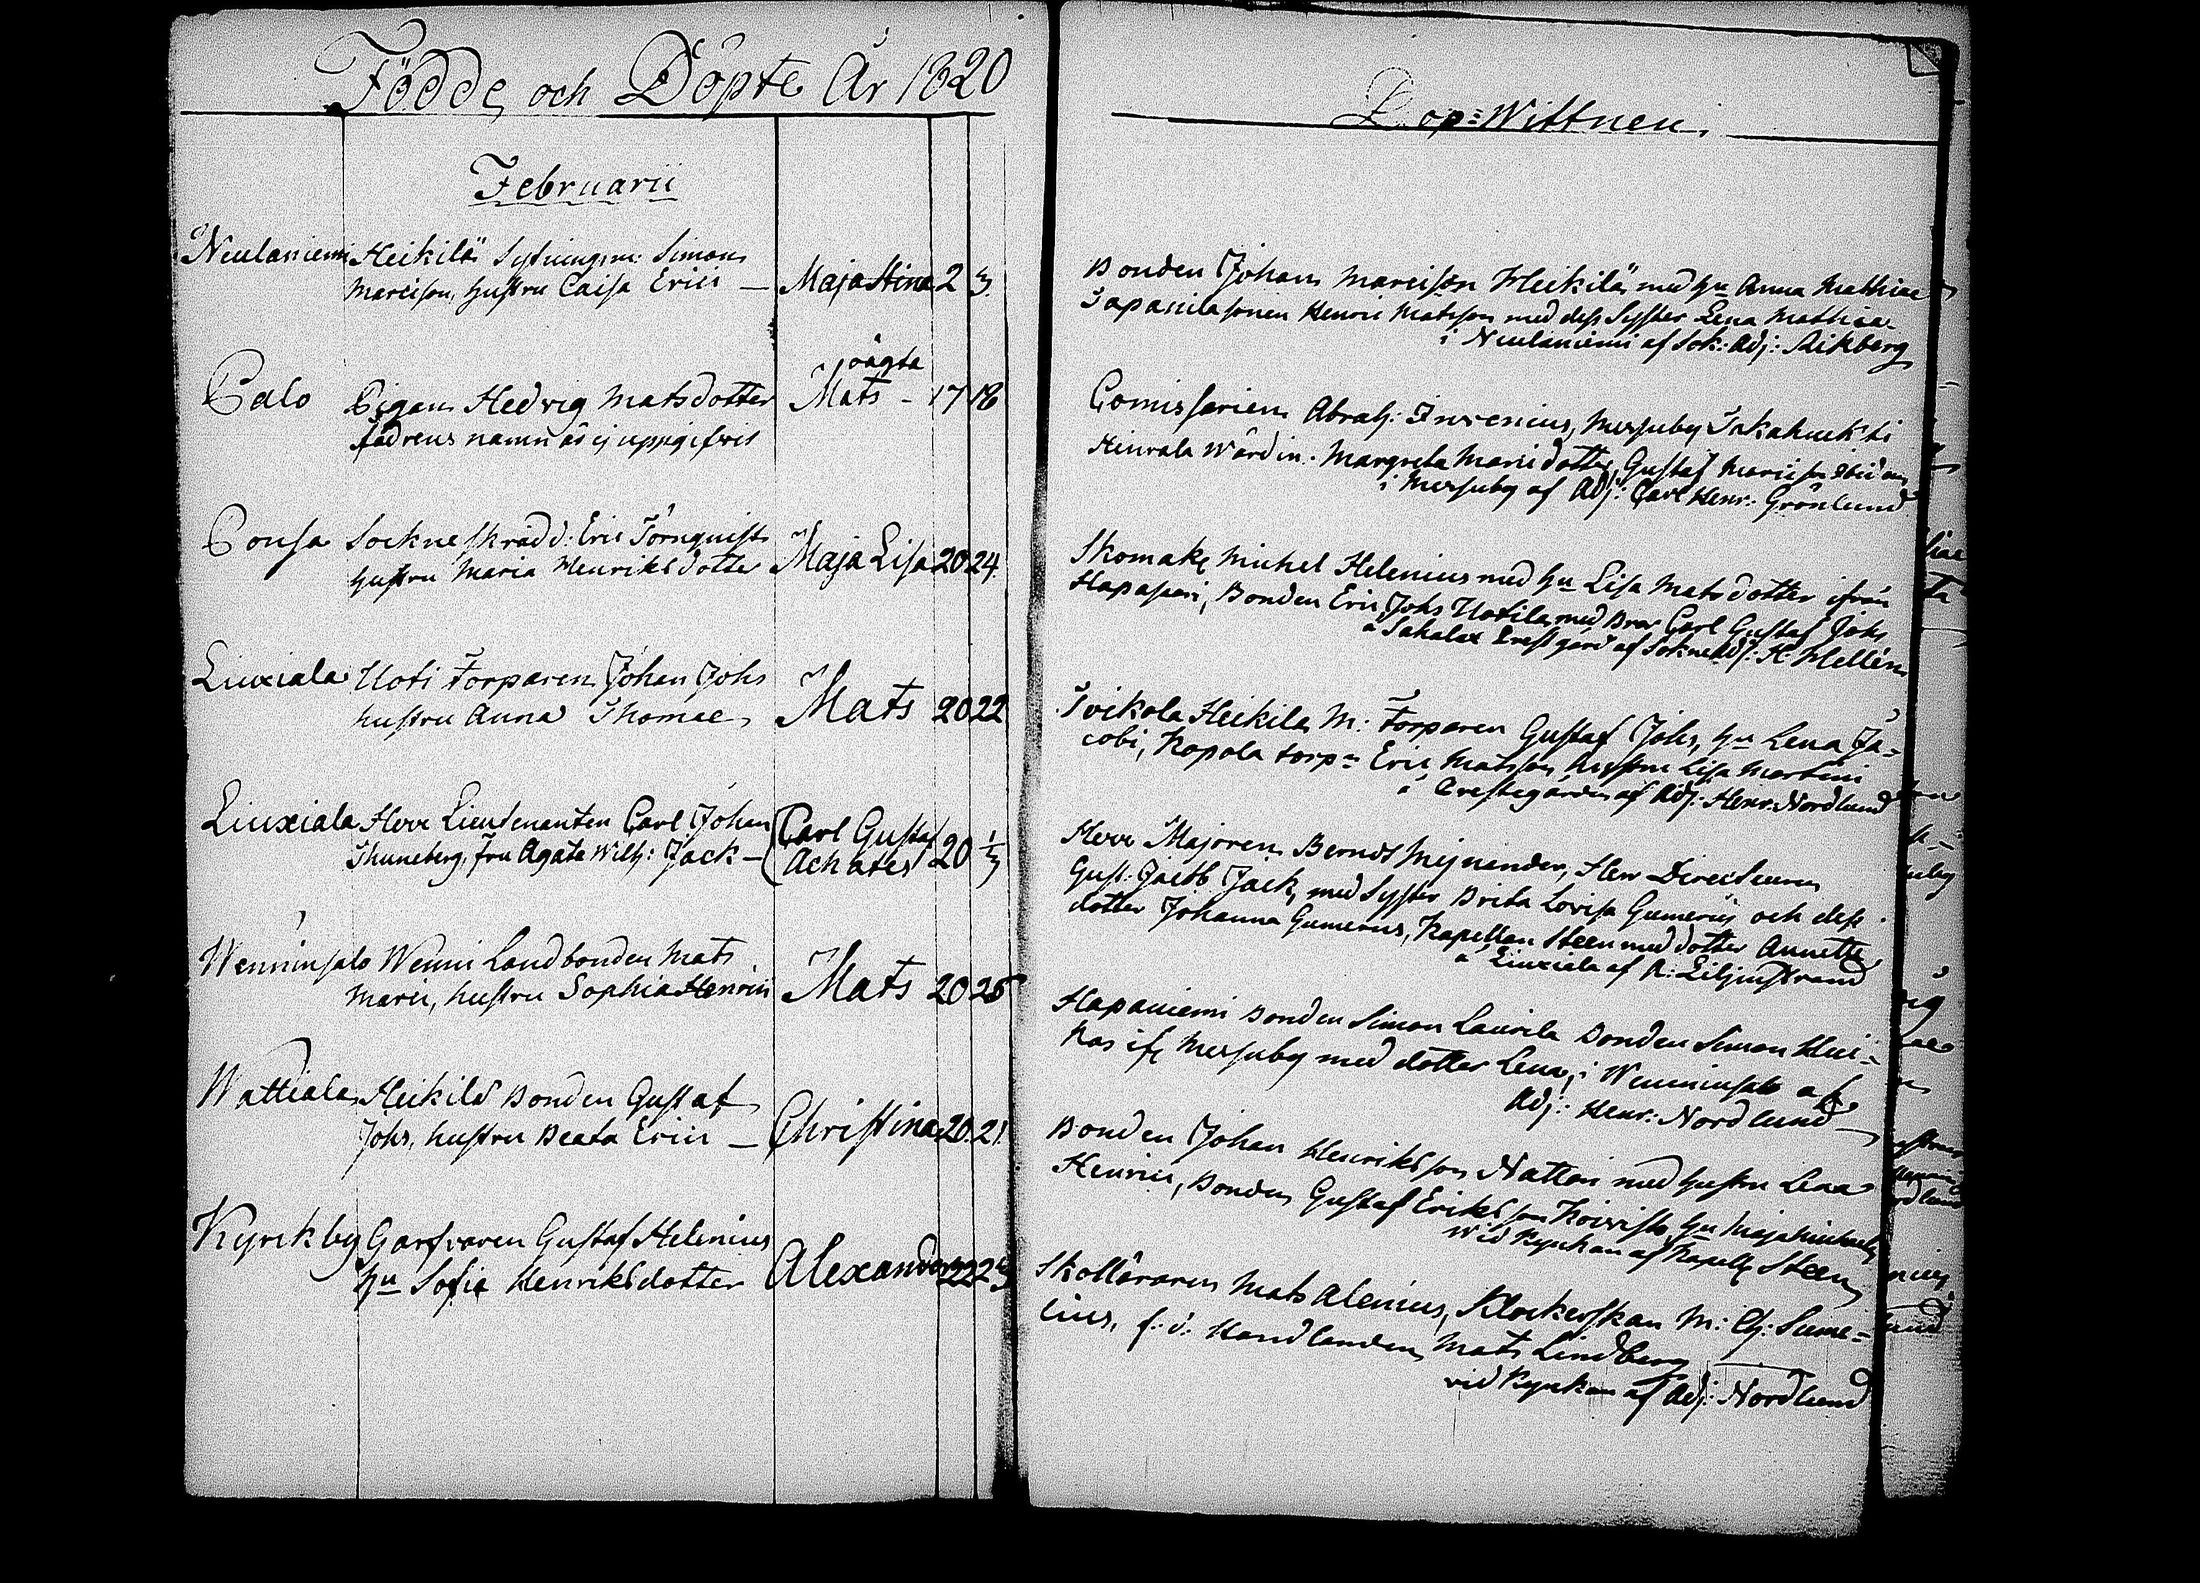 Födde och Döpte År 1820
Februarii
Neulaniemi Heikilä Sytningsm: Simon
Marcisson, hustru Caisa Erici — Maja Stina 2 3.
oägta
Palo Pigan Hedvig Matsdotter Mats - 17 18
fadrens namn är ej uppgifvit
Ponsa Sockne Skrädd: Eric Törnquist
hustru Maria Henriksdotter Maja Lisa 20 24.
Liuxiala Uoti Torparen Johan Johs
hustru Anna Thomae Mats 20 22
Liuxiala Herr Lieutenanten Carl Johan Carl Gustaf
Thuneberg, Fru Agata Wilh: Jack — Achates 20 1/3
Wenninsalo Wenni Landbonden Mats
Marci, hustru Sophia Henrici Mats 20 25
Wattiala Heikilä Bonden Gustaf
Johs, hustru Beata Erici — Christina 20. 21.
Kyrkby Garfvaren Gustaf Helenius
hu Sofia Henriksdotter Alexander 22
Dop=Wittnen.
Bonden Johan Marcisson Heikilä med hu Anna Mathiae
Tapanila sonen Henric Matsson med dess Syster Lena Mathiae
i Neulaniemi af Sok: Adj:
Comissarien Abrah: Invenius, Mersuby Jakahuchti
Heurala Wärdin: Margreta Marci dotter, Gustaf Marcisson
i Mersuby af Adj: Carl Henr: Grönlund
Skomak: Michel Helenius med hu Lisa Matsdotter ifrån
Haapasari, Bonden Eric Johs Uotila, med Bror Carl Gustaf Johs
å Sahalax Prestgård af Sokne Adj: K. Hellén
Toikola Heikila M: Torparen Gustaf Johs, hu Lena Ja=
cobi, Kopola torpn Eric Matsson, hustru Lisa Martini
å Prestegården af Adj: Henr: Nordlund
Herr Majoren Berndt Mejnander, Herr Directeuren
Gust: Jacob Jack, med Syster Brita Lovisa Gumerus och dess
dotter Johanna Gumerus, Kapellan Steen med dotter Annette
å Liuxiala af R: Liljestrand
Hapaniemi Bonden Simon Laurila Bonden Simon
Kas ifr Mersuby med dotter Lena, i Wenninsalo af
Adj: Henr: Nordlund
Bonden Johan Henriksson Nattari med hustru Lena
Henrici, Bonden Gustaf Eriksson Koivisto hu Maja
wid Kyrkan af Kapell: Steen
Skolläraren Mats Alenius, Klockerskan M: Ch: Sume=
lius, f: d: Handlanden Mats Lindberg
vid Kyrkan af Adj: Nordlund